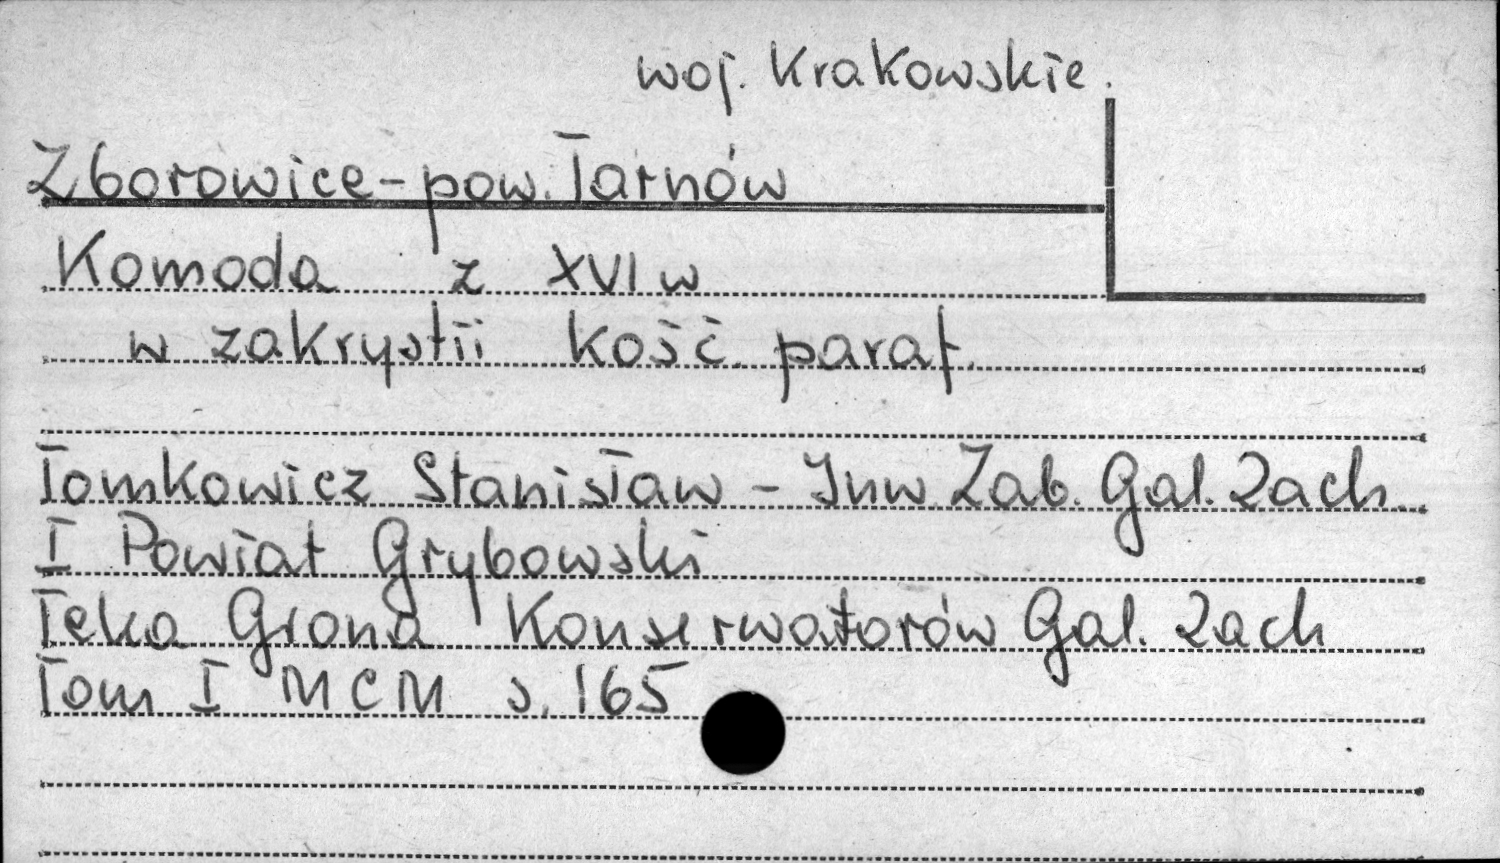 woj. Krakowskie.
Zborowice - pow. Tarnów
Komoda z XVI w
w zakrystii kość. paraf.
Tomkowicz Stanisław - Inw. Zab. Gal. Zach.
I Powiat Grybowski
Teka Grona Konserwatorów Gal. Zach
Tom I MCM s. 165